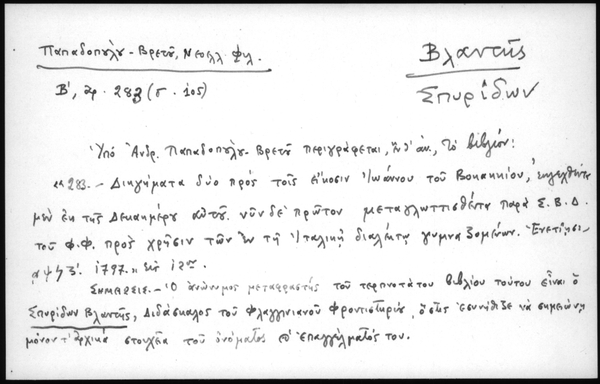 Παπαδοπούλου - Βρετοῦ, Νεοελλ. Φιλ.
Βλαντῆς
Σπυρίδων
Β', ἀρ. 283 (σ. 105)
Ὑπὸ Ἀνδρ. Παπαδοπούλου - Βρετοῦ περιγράφεται, ἔνθ' ἀν., τὸ βιβλίον:
«283. – Διηγήματα δύο πρὸς τοῖς εἴκοσιν Ἰωάννου τοῦ Βοκακκίου, ἐκλεχθέντα
μὲν ἐκ τῆς Δεκαημέρου αὐτοῦ. νῦν δὲ πρῶτον μεταγλωττισθέντα παρὰ Σ. Β. Δ.
τοῦ Φ. Φ. πρὸς χρῆσιν τῶν ἐν τῇ Ἰταλικῇ διαλέκτῳ γυμναζομένων. Ἐνετίησι
1797. » εἰς 12ον.
ΣΗΜΕΙΩΣΙΣ. – Ὁ ἀνώνυμος μεταφραστὴς τοῦ τερπνοτάτου βιβλίου τούτου εἶναι ὁ
Σπυρίδων Βλαντῆς, Διδάσκαλος τοῦ Φλαγγινιανοῦ Φροντιστηρίου, ὅστις ἐσυνήθιζε νὰ σημειώνῃ
μόνον τ' ἀρχικὰ στοιχεῖα τοῦ ὀνόματος ἐπαγγέλματός του.